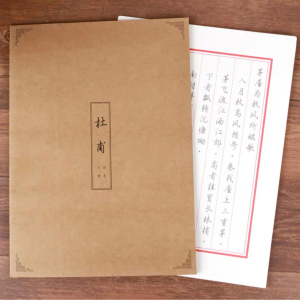 杜甫
茅屋为秋风所破歌
八月秋高风怒号，卷我屋上三重茅。
茅飞渡江洒江郊，高者挂罥长林梢，
下者飘转沉塘坳。
南村